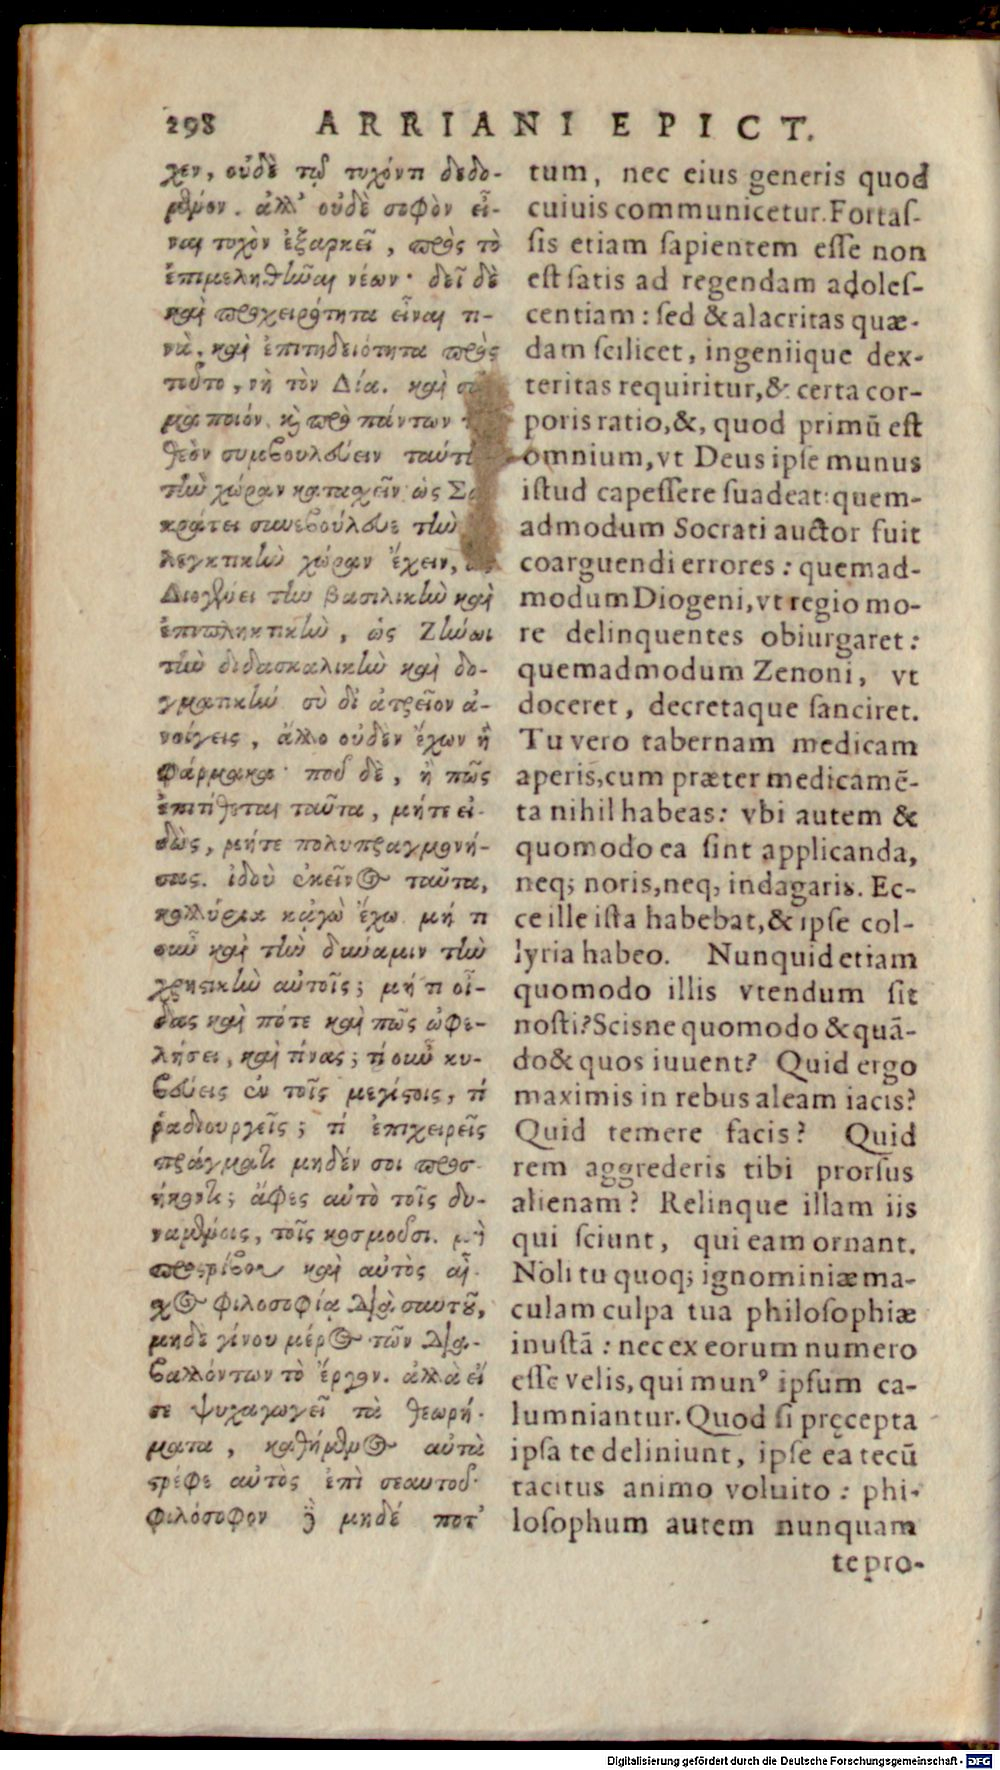 298 ARRIANI EPICT.
χεν, οὐδὲ τῷ τυχόντι δεδο-
μένον. ἀλλ' οὐδὲ σοφὸν εἶ-
ναι τυχὸν ἐξαρκεῖ, πρὸς τὸ
ἐπιμεληθῆναι νέων· δεῖ δὲ
καὶ προχειρότητα εἶναι τι-
νὰ, καὶ ἐπιτηδειότητα πρὸς
τοῦτο, νὴ τὸν Δία. καὶ
μα ποιόν, κὶ πρὸ πάντων
θεὸν συμβουλεύειν
τὴν χώραν κατασχεῖν· ὡς
κράτει συνεβούλευε τὴν
λεγκτικὴν χώραν ἔχειν,
Διογένει τὴν βασιλικὴν καὶ
ἐπιπληκτικὴν, ὡς Ζήνωνι
τὴν διδασκαλικὴν καὶ δο-
γματικήν. σὺ δ' ἰατρεῖον ἀ-
νοίγεις, ἄλλο οὐδὲν ἔχων ἢ
φάρμακα· ποῦ δὲ, ἢ πῶς
ἐπιτίθεται ταῦτα, μήτε εἰ-
δὼς, μήτε πολυπραγμονή-
σας. ἰδοὺ ἐκεῖνος ταῦτα,
κολλύρια κἀγὼ ἔχω. μή τι
οὖν καὶ τὴν δύναμιν τὴν
χρηστικὴν αὐτοῖς; μή τι οἶ-
δας καὶ πότε καὶ πῶς ὠφε-
λήσει, καὶ τίνας; τί οὖν κυ-
βεύεις ἐν τοῖς μεγίστοις, τί
ῥαδιουργεῖς; τί ἐπιχειρεῖς
πράγματι μηδέν σοι προσ-
ήκοντι; ἄφες αὐτὸ τοῖς δυ-
ναμένοις, τοῖς κοσμοῦσι. μὴ
προστρίβου καὶ αὐτὸς αἶ-
χος φιλοσοφίᾳ διὰ σαυτοῦ,
μηδὲ γίνου μέρος τῶν δια-
βαλλόντων τὸ ἔργον. ἀλλὰ εἴ
σε ψυχαγωγεῖ τὰ θεωρή-
ματα, καθήμενος αὐτὰ
στρέφε αὐτὸς ἐπὶ σεαυτοῦ·
φιλόσοφον δὲ μηδέ ποτ'
tum, nec eius generis quod
cuiuis communicetur. Fortas-
sis etiam sapientem esse non
est satis ad regendam adoles-
centiam: sed & alacritas quæ-
dam scilicet, ingeniique dex-
teritas requiritur, & certa cor-
poris ratio, &, quod primū est
omnium, vt Deus ipse munus
istud capessere suadeat: quem-
admodum Socrati auctor fuit
coarguendi errores: quemad-
modum Diogeni, vt regio mo-
re delinquentes obiurgaret:
quemadmodum Zenoni, vt
doceret, decretaque sanciret.
Tu vero tabernam medicam
aperis, cum præter medicamē-
ta nihil habeas: vbi autem &
quomodo ea sint applicanda,
neq; noris, neq, indagaris. Ec-
ce ille ista habebat, & ipse col-
lyria habeo. Nunquid etiam
quomodo illis vtendum sit
nosti? Scisne quomodo & quā-
do & quos iuuent? Quid ergo
maximis in rebus aleam iacis?
Quid temere facis? Quid
rem aggrederis tibi prorsus
alienam? Relinque illam iis
qui sciunt, qui eam ornant.
Noli tu quoq; ignominiæ ma-
culam culpa tua philosophiæ
inustā: nec ex eorum numero
esse velis, qui munꝰ ipsum ca-
lumniantur. Quod si pręcepta
ipsa te deliniunt, ipse ea tecū
tacitus animo voluito: phi-
losophum autem nunquam
te pro-
Digitalisierung gefördert durch die Deutsche Forschungsgemeinschaft - DFG